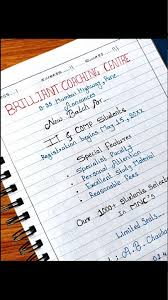 BRILLIANT COACHING CENTRE
B-35, Mumbai Highway, Pune
Announces
New Batch For
IT & COMP Students
Registration begins May 15, 20XX
Special Features
Specialist
Personal Attention
Excellent Study Material
Reasonable Fees
Our 1000+ Students Selected
in MNC's
Limited